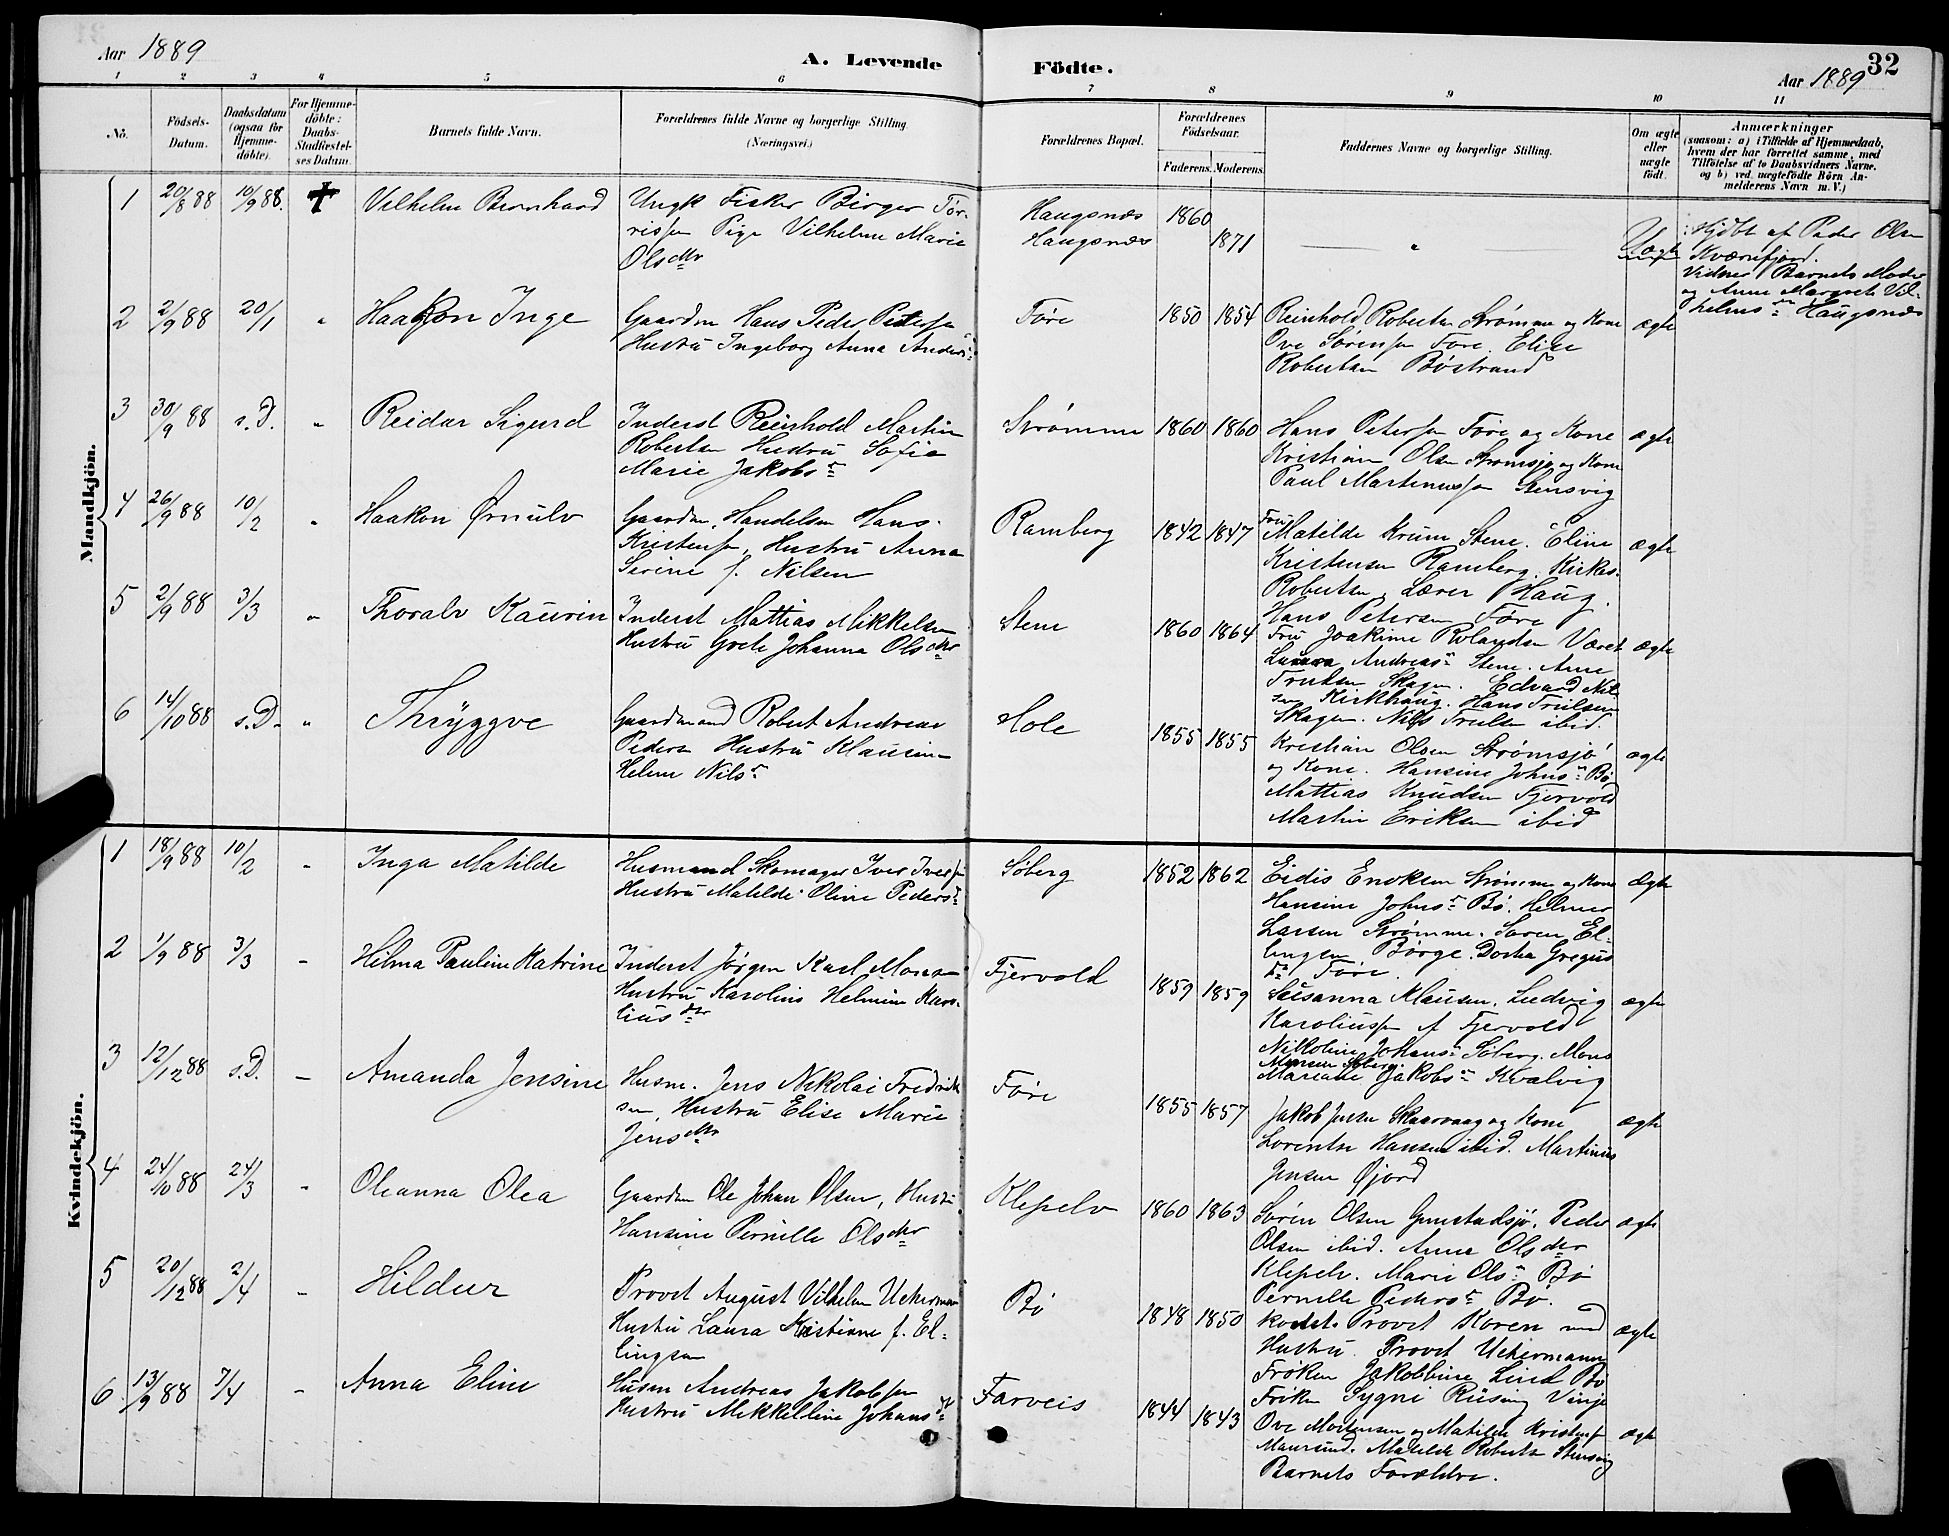 Aar 1889
A. Levende Födte.
32
Aar 1889
1 2 3 4 5 6 7 8 9 10 11
No.
Födsels-
Datum.
Daabsdatum
(ogsaa for
Hjemme-
döbte).
For Hjemme-
döbte:
Daabs-
Stadfæstel-
ses Datum.
Barnets fulde Navn.
Forældrenes fulde Navne og borgerlige Stilling
(Næringsvei.)
Forældrenes Bopæl.
Forældrenes
Födselsaar.
Faderens. Moderens.
Faddernes Navne og borgerlige Stilling.
Om ægte
eller
uægte
født.
Anmærkninger
(saasom: a) i Tilfælde af Hjemmedaab,
hvem der har forrettet samme, med
Tilföielse af to Daabsvidners Navne.
og b) ved uægtefödte Börn An-
melderens Navn m. V.)
Mandkjön.
1 20/8 88 10/9 88. Vilhelm Bernhard
Ungk Fisker Birger Tör-
rissen Pige Vilhelmine Marie
Olsdtr
Haugsnæs
Haugsnæs
1860
1871
"
Uægte
Hjdbt af Peder Olsen
Kværnfjord.
Vidner Barnets Moder
og Anne Margrete Vil-
helmsdtr Haugsnæs
2 2/9 88 20/1 " Haakon Inge
Gaardm Hans Peder Petersen
Hustru Ingeborg Anna Anders
Føre
1850 1854
Reinhold Robertsen Strømme og Kone
Ove Sørensen Føre. Elise
Robertsen Bøstrand
ægte
3 30/9 88 s.D. " Reidar Sigurd
Inderst Reinhold Martin
Robertsen Hustru Sofie
Marie Jakobs
Strømme
1860 1860
Hans Petersen Føre og Kone
Kristian Olsen Strømsjø og Kone
Paul Martinussen Stensvig
ægte
4 26/9 88 10/2 " Haakon Ørnulv
Gaardm. Handelsm Hans
Kristensen, Hustru Anna
Serine f. Nilsen
Ramberg
1842 1847
Fru Matilde Krum Stene. Eline
Kristensen Ramberg. Kirkes.
Robertsen, Lærer Haug.
Hans Petersen Føre
ægte
5 2/9 88 3/3 " Thoralv Kaurin
Inderst Mattias Mikkelsen
Hustru Grete Johanna Olsdtr
Stene
1860 1864
Fru Joakime Rolandsen Været
Laura Andreas Stene. Anne
Trulsen Skagen. Edvard Nil
sen Kirkhaug. Hans Trulsen
Skagen. Nils Trulsen ibid
ægte
6 14/10 88 s.D. " Thryggve
Gaardmand Robert Andreas
Peders Hustru Klausine
Helene Nils
Hole
1855 1855
Kristian Olsen Strømsjø
og Kone. Hansine Johns Bø
Mattias Knudsen Fjervold
Martin Eriksen ibid
ægte
Kvindekjön.
1 18/9 88 10/2 " Inga Matilde
Husmand Skomager Iver Iversen
Hustru Matilde Oline Peders
Søberg
1852 1862
Eidis Enoksen Strømme og Kone
Hansine Johns Bø. Helmer
Larsen Strømme. Søren El-
lingsen Børge. Dortea Gregus
dtr Føre.
Ægte
2 1/9 88 3/3 " Helma Pauline Katrine
Inderst Jørgen Karl Monsen
Hustru Karolius Helmine Karo-
lius dtr
Fjervold
1859 1859
Susanna Klausen, Ludvig
Karoliussen af Fjervold
Nikoline Johans Søberg. Mons
Monsen Søberg.
Mariane Jakobs Kvalvig
ægte
3 12/12 88 s.D. " Amanda Jensine
Husm. Jens Nikolai Fredrik
sen, Hustru Elise Marie
Jensdtr
Føre
1855 1857
Jakob Jensen Skaarvaag og Kone
Lorentse Hansen ibid. Martinus
Jensen Øjord
ægte
4 24/10 88 24/3 " Oleanna Olea
Gaardm Ole Johan Olsen, Hustru
Hansine Pernille Olsdtr
Klepelv
1860 1863
Søren Olsen Gunstadsjø. Peder
Olsen ibid. Anna Olsdtr
Klepelv. Marie Ols Bø
Pernille Peders Bø.
ægte
5 20/12 88 2/4 " Hildur
Provst August Vilhelm Uckermann
Hustru Laura Kristiane f. El-
lingsen
Bø
1848 1850
Provst Koren med
Hustru. Provst Uckermann
Frøken Jakobbine Lind Bø
Frøken Sygni Rüsing Vinje
ægte
6 13/9 88 7/4 " Anna Eline
Husm Andreas Jakobsen
Hustru Mikkelline Johans
Farveis
1844 1843
Ove Mortensen og Matilde Kristens
Maursund. Matilde Roberts Stensvig
Barnets Forældre.
ægte